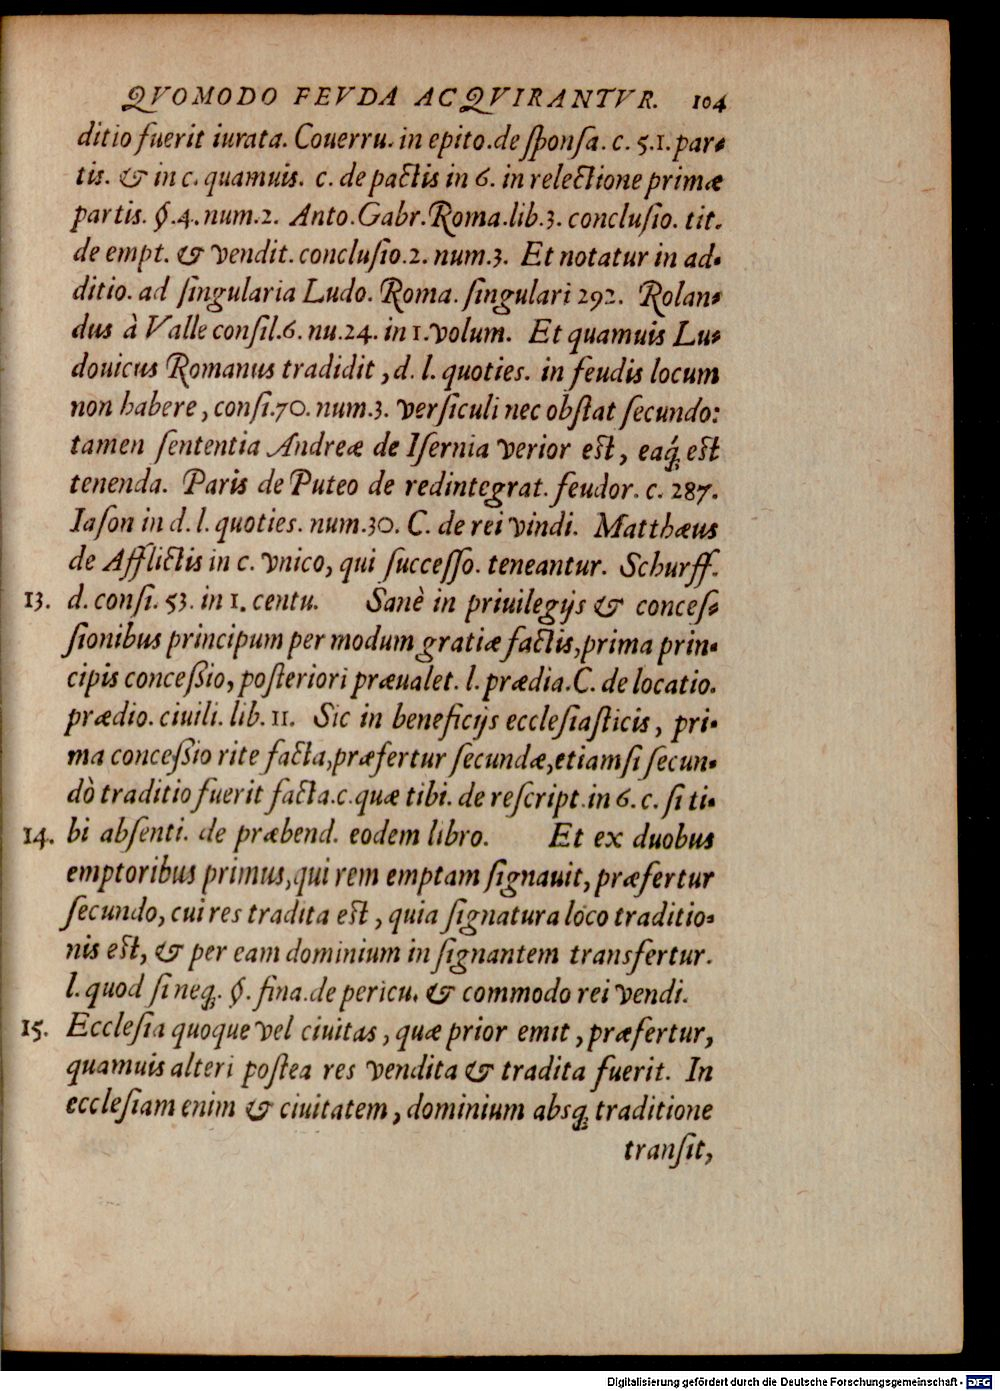 QVOMODO FEVDA ACQVIRANTVR. 104
ditio fuerit iurata. Couerru. in epito. de sponsa. c. 5. 1. par-
tis. & in c. quamuis. c. de pactis in 6. in relectione primæ
partis. §. 4. num. 2. Anto. Gabr. Roma. lib. 3. conclusio. tit.
de empt. & vendit. conclusio. 2. num. 3. Et notatur in ad-
ditio. ad singularia Ludo. Roma. singulari 292. Rolan-
dus à Valle consil. 6. nu. 24. in 1. volum. Et quamuis Lu-
douicus Romanus tradidit, d. l. quoties. in feudis locum
non habere, consi. 70. num. 3. versiculi nec obstat secundo:
tamen sententia Andreæ de Isernia verior est, eaq́; est
tenenda. Paris de Puteo de redintegrat. feudor. c. 287.
Iason in d. l. quoties. num. 30. C. de rei vindi. Matthæus
de Afflictis in c. vnico, qui successo. teneantur. Schurff.
13. d. consi. 53. in 1. centu. Sanè in priuilegijs & conces-
sionibus principum per modum gratiæ factis, prima prin-
cipis concessio, posteriori præualet. l. prædia. C. de locatio.
prædio. ciuili. lib. 11. Sic in beneficijs ecclesiasticis, pri-
ma concessio rite facta, præfertur secundæ, etiamsi secun-
dò traditio fuerit facta. c. quæ tibi. de rescript. in 6. c. si ti-
14. bi absenti. de præbend. eodem libro. Et ex duobus
emptoribus primus, qui rem emptam signauit, præfertur
secundo, cui res tradita est, quia signatura loco traditio-
nis est, & per eam dominium in signantem transfertur.
l. quod si neq;. §. fina. de pericu. & commodo rei vendi.
15. Ecclesia quoque vel ciuitas, quæ prior emit, præfertur,
quamuis alteri postea res vendita & tradita fuerit. In
ecclesiam enim & ciuitatem, dominium absq; traditione
transit,
Digitalisierung gefördert durch die Deutsche Forschungsgemeinschaft - DFG